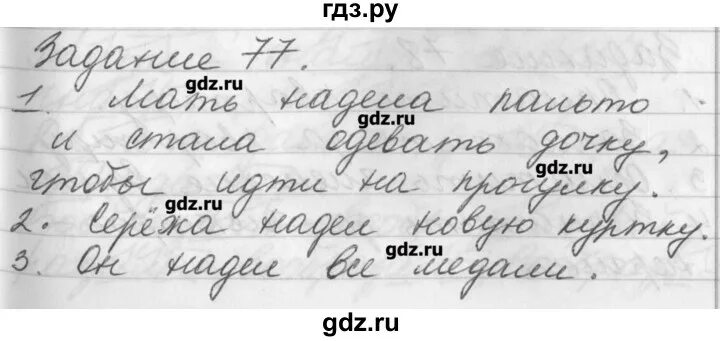 гдз.ру
Задание 77.
gdz.ru
1. Мать надела пальто
gdz.ru
и стала одевать дочку,
gdz.ru
чтобы идти на прогулку.
gdz.ru
gdz.ru
2. Серёжа надел новую куртку.
gdz.ru
3. Он надел все медали.
gdz.ru